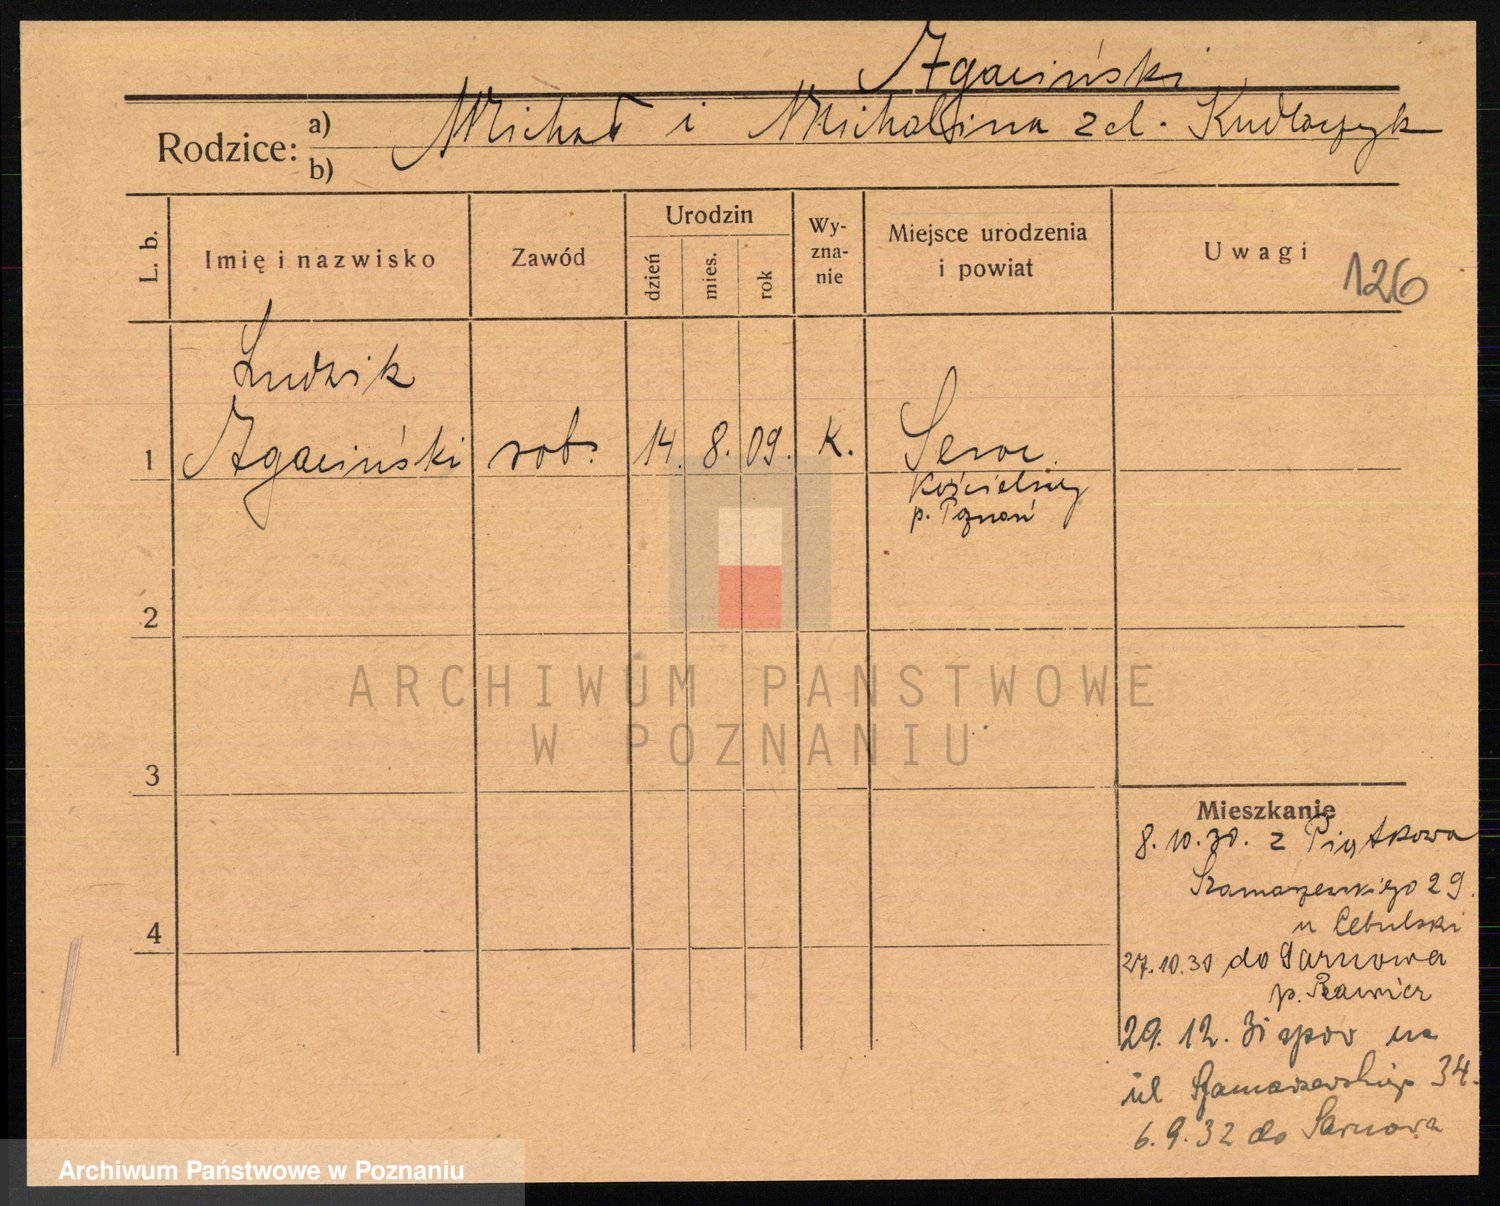 Zgaciński
Rodzice: a) b) Michał i Michalina z d. Kudlaszyk
L. b.
Imię i nazwisko
Zawód
Urodzin
dzień
mies.
rok
Wy-
zna-
nie
Miejsce urodzenia
i powiat
Uwagi
126
Ludwik
1 Zgaciński rob. 14. 8. 09. K.
Kościelny
p. Poznań
2
ARCHIWUM PAŃSTWOWE
W POZNANIU
3
Mieszkanie
8.10.30. z Piątkowa
Szamarzewskiego 29.
u Cebulski
4
27.10.30 do Sarnowa
p. Rawicz
29. 12. 31 na
ul Szamarzewskiego 34.
6.9.32 do Sarnowa
Archiwum Państwowe w Poznaniu